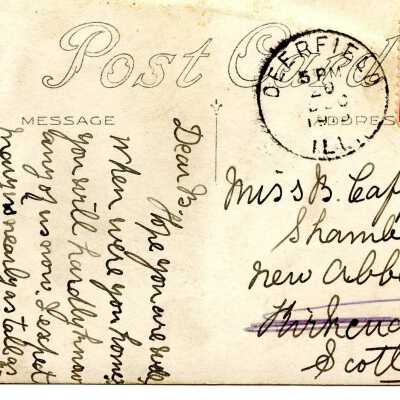 Post Card
MESSAGE
ADDRESS
DEERFIELD
5 PM
20
DEC
ILL.
Dear B.
Hope you are well
when were you home
you will hardly know
any of us now. I expect
Mary is nearly as tall as
Miss B.
New Abbe
Scotl